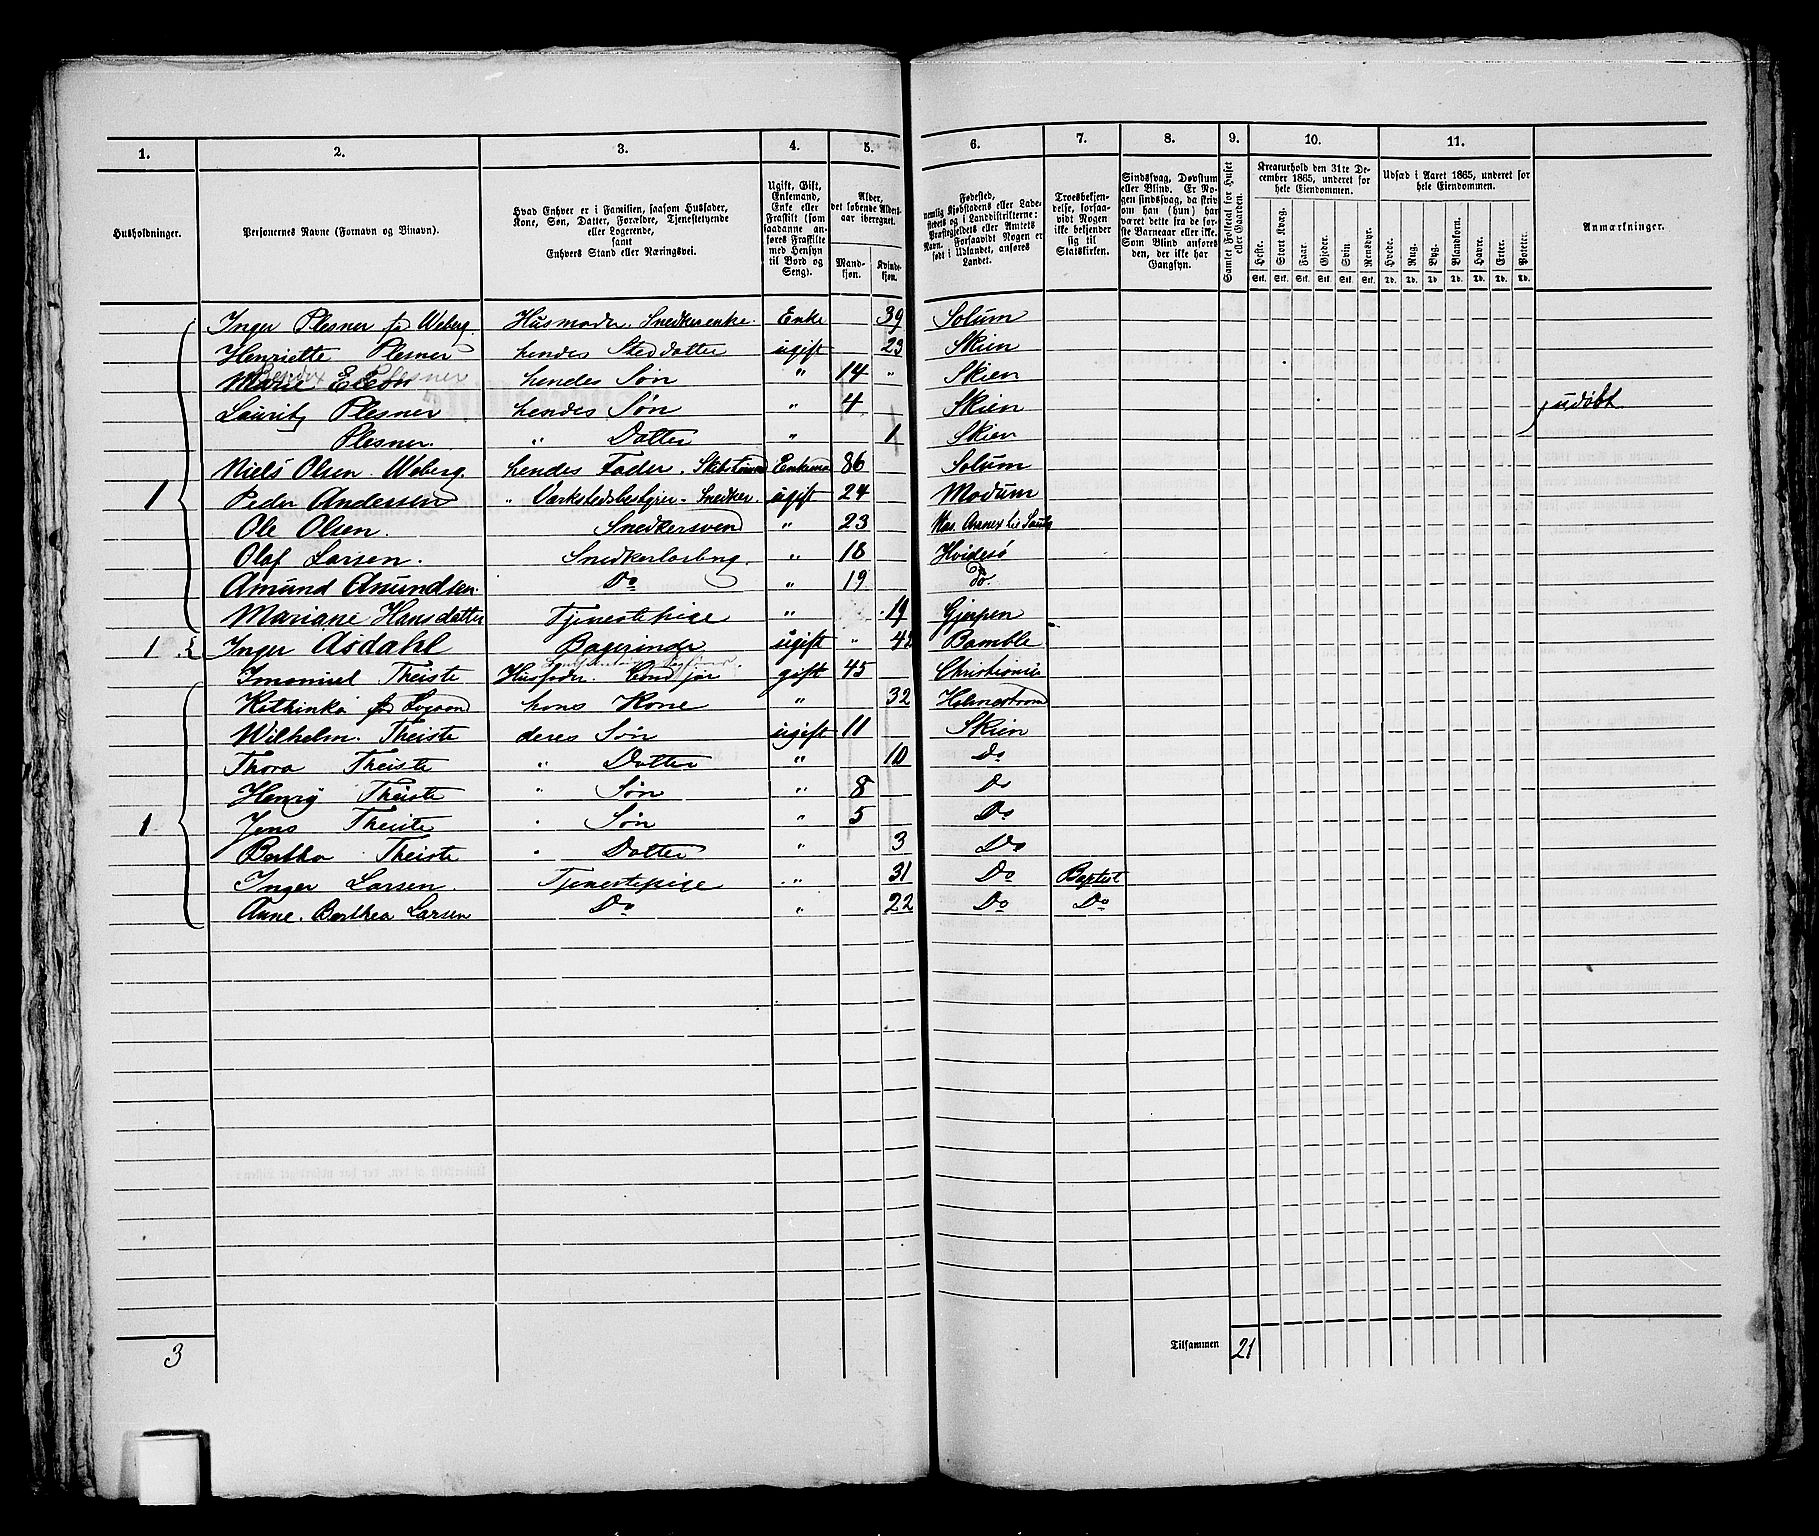 1. 2. 3. 4. 5. 6. 7. 8. 9. 10. 11.
Husholdninger.
Personernes Navne (Fornavn og Binavn).
Hvad Enhver er i Familien, saasom Husfader,
Kone, Søn, Datter, Forældre, Tjenestetyende
eller Logerende,
samt
Enhvers Stand eller Næringsvei.
Ugift, Gift,
Enkemand,
Enke eller
Fraskilt (som
saadanne an-
føres Fraskilte
med Hensyn
til Bord og
Seng).
Alder,
det løbende Alders-
aar iberegnet.
Mand-
kjøn.
Kvinde-
kjøn.
Fødested,
nemlig Kjøbstadens eller Lade-
stedets og i Landdistrikterne:
Præstegjældets eller Amtets
Navn. Forsaavidt Nogen er
født i Udlandet, anføres
Landet.
Troesbekjen-
delse, forsaa-
vidt Nogen
ikke bekjender
sig til
Statskirken.
Sindssvag, Døvstum
eller Blind. Er No-
gen sindssvag, da skriv
om han (hun) har
været dette fra de før-
ste Barneaar eller ikke.
Som Blind anføres
den, der ikke har
Gangsyn.
Samlet Folketal for Huset
eller Gaarden.
Kreaturhold den 31te De-
cember 1865, underet for
hele Eiendommen.
Heste. Stort Kvæg. Faar. Gjeder. Svin. Rensdyr.
Stk. Stk. Stk. Stk. Stk. Stk.
Udsæd i Aaret 1865, underet for
hele Eiendommen.
Hvede. Rug. Byg. Blandkorn. Havre. Erter. Poteter.
Td. Td. Td. Td. Td. Td. Td.
Anmærkninger.
Inger Plesner fd Weberg. Husmoder. Snedkerenke. Enke 39 Solum
Henriette Plesner hendes Steddatter ugift 23 Skien
Plesner hendes Søn " 14 " Skien
Lauritz Plesner hendes Søn " 4 Skien
Plesner. " Datter " 1 Skien udøbt
Niels Olsen Weberg. hendes Fader. Enkema 86 Solum
1 Peder Andersen " Værkstedsbestyrer - Snedker. ugift 24 Modum
Ole Olsen. Snedkersvend " 23
Olaf Larsen. Snedkerlærling. " 18 Hvidesø
Amund Amundsen. Do " 19 Do.
Mariane Hansdatter Tjenestepige " 19 Gjerpen
1 Inger Asdahl Bagerinde ugift " 42 Bamble
Imanuel Theiste Husfader. gift 45 Christiania
Kathinka fd hans Kone " 32 Holmestrand
Wilhelm. Theiste deres Søn ugift 11 Skien
Thora Theiste " Datter " 10 Do
Henry Theiste " Søn " 8 Do
1 Jens Theiste " Søn " 5 Do
Bertha Theiste " Datter " 3 Do
Inger Larsen. Tjenestepige " 31 Do Baptist
Anne. Berthea Larsen Do " 22 Do Do
3 Tilsammen 21